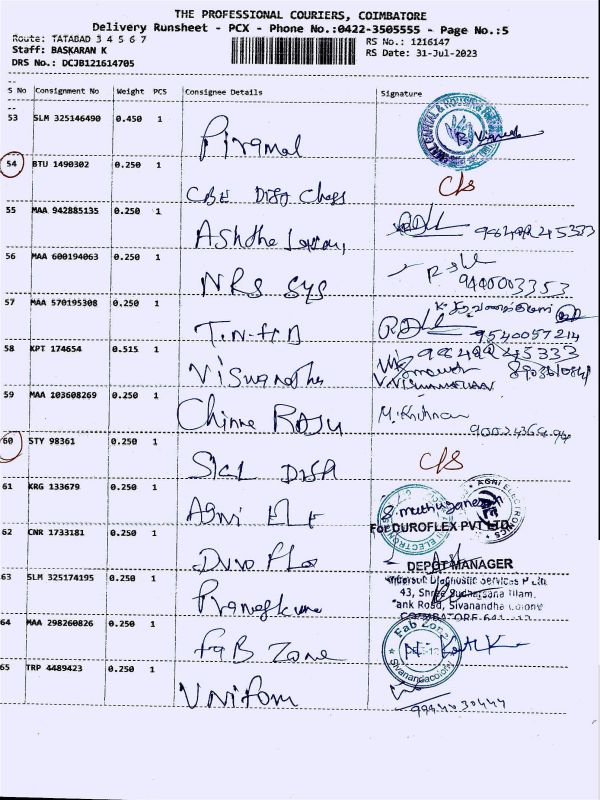 THE PROFESSIONAL COURIERS, COIMBATORE
Delivery Runsheet - PCX - Phone No.:0422-3505555 - Page No.:5
Route: TATABAD 3 4 5 6 7
RS No.: 1216147
Staff: BASKARAN K
RS Date: 31-Jul-2023
DRS No.: DCJB121614705
S No Consignment No Weight PCS Consignee Details Signature
53 SLM 325146490 0.450 1 Piramal
54 BTU 1490302 0.250 1 CBE Dist C/s
55 MAA 942885135 0.250 1
56 MAA 600194063 0.250 1 NRS Sys 9440003353
57 MAA 570195308 0.250 1 9540057214
58 KPT 174654 0.515 1 Viswanatha
59 MAA 103608269 0.250 1 Chinna Raju M. Krishnan
60 STY 98361 0.250 1 C/S
61 KRG 133679 0.250 1 Agni S. muthuganesh
For DUROFLEX PVT LTD.
62 CNR 1733181 0.250 1 Duro Flex
DEPOT MANAGER
63 SLM 325174195 0.250 1 Diagnostic Services P Ltd.
43, Shree Sudharsana Illam,
Tank Road, Sivanandha Colony
COIMBATORE-641
64 MAA 298260826 0.250 1 Fab Zone Fab Zone
Sivanandacolony
65 TRP 4489423 0.250 1 Uniform 9944030444